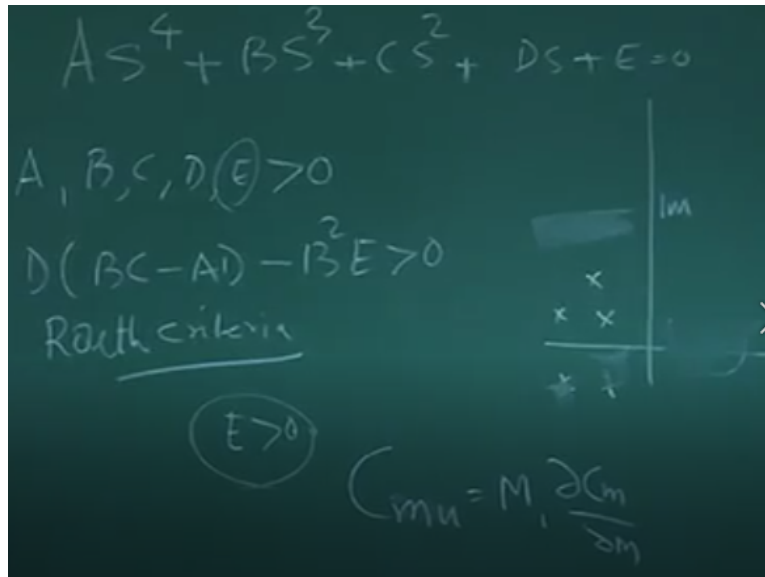 AS⁴ + BS³ + CS² + DS + E = 0
A, B, C, D, E > 0
Im
D(BC - AD) - B²E > 0
Routh criteria
E > 0
Cmu = M₁ ∂Cm/∂m